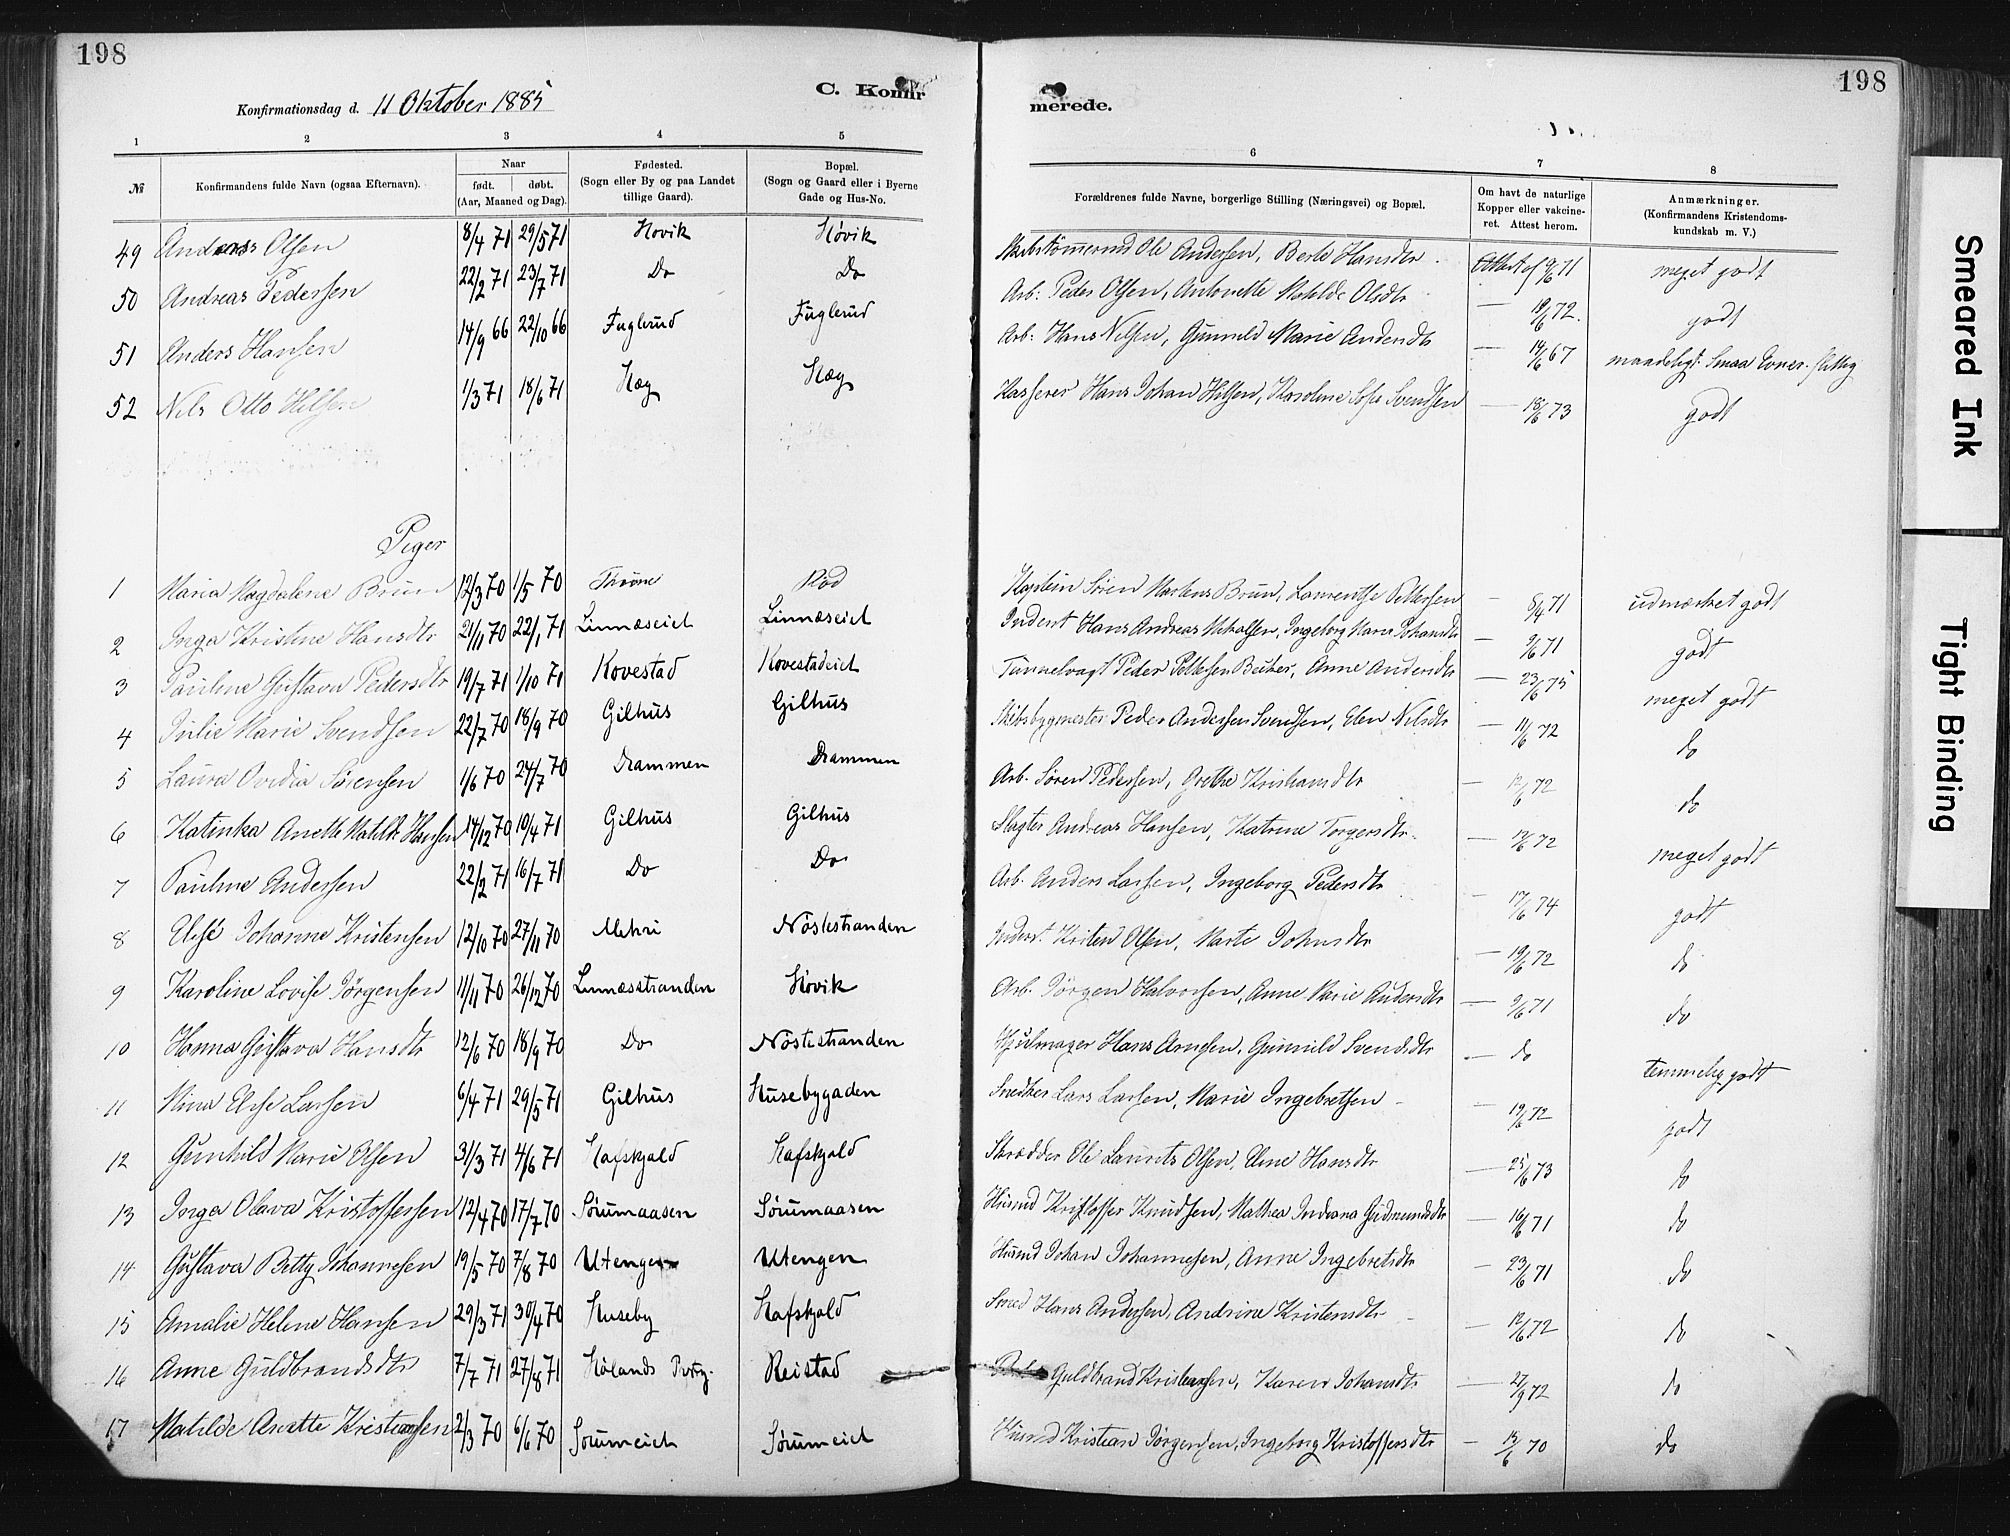 198
198
C. Konfir
merede.
Konfirmationsdag d. 11 Oktober 1885
1 2 3 4 5
6 7 8
№ Konfirmandens fulde Navn (ogsaa Efternavn). Naar født. døbt. (Aar, Maaned og Dag). Fødested. (Sogn eller By og paa Landet tillige Gaard). Bopæl. (Sogn og Gaard eller i Byerne Gade og Hus-No.
Forældrenes fulde Navne, borgerlige Stilling (Næringsvei) og Bopæl. Om havt de naturlige Kopper eller vakcineret. Attest herom. Anmærkninger. (Konfirmandens Kristendomskundskab m. V.)
49 Anders Olsen 8/4 71 29/5 71 Hovik Høvik Ole Andersen, Berte Hansdtr Attest af 9/6 71 meget godt
50 Andreas Pedersen 22/2 71 23/7 71 Do Do Arb: Peder Olsen, Antonette Matilde Olsdtr — 19/6 72. godt
51 Anders Hansen 14/9 66 22/10 66 Fuglerud Fuglerud Arb: Hans Nilsen, Gunnild Marie Andersdtr — 14/6 67 maadeligt. Smaa Evner. flittig
52 Nils Otto Hilsen 1/3 71 18/6 71 Hæg Hæg Kasserer Hans Johan Hilsen, Karoline Sofie Svendsen — 18/6 73 godt
Piger
1 Maria Magdalene Brun 12/3 70 1/5 70 Rød Kaptein Søren Martens Brun, Laurentse Pettersen — 8/4 71 udmærket godt
2 Inga Kristine Hansdtr 21/11 70 22/1 71 Linnæseiet Linnæseiet Inderst Hans Andreas, Ingeborg Marie Johansdtr — 9/6 71 godt
3 Pauline Gustava Pedersdtr 19/7 71 1/10 71 Kovestad Kovestadeiet Tunnelvagt Peder Pettersen, Anne Andersdtr — 23/6 75 meget godt
4 Julie Marie Svendsen 22/7 70 18/9 70 Gilhus Gilhus Skibsbygmester Peder Andersen Svendsen, Elen Nilsdtr — 11/6 72 do
5 Laura Ovidia Sørensen 1/6 70 24/7 70 Drammen Drammen Arb. Søren Pedersen, Grethe Kristiansdtr — 12/6 72 do
6 Katinka Anette Matilde Hansen 14/12 70 10/4 71 Gilhus Gilhus Slagter Andreas Hansen, Katrine Torgersdtr. — 12/6 72 meget godt
7 Pauline Andersen 22/2 71 16/7 71 Do Do Arb. Anders Larsen, Ingeborg Pedersdtr — 17/6 74 godt
8 Else Johanne Kristensen 12/10 70 27/11 70 Nøstestranden Inderst. Kristen Olsen, Marte Johnsdtr — 19/6 72 do
9 Karoline Lovise Jørgensen 11/11 70 26/12 70 Linnæsstranden Høvik Arb. Jørgen Halvorsen, Anne Marie Andersdtr — 9/6 71 do
10 Hanna Gustava Hansdtr 12/6 70 18/9 70 Do Nøstestranden Hjulmager Hans Arnesen, Gunnild Svendsdtr — do temmelig godt
11 Mina Else Larsen 6/4 71 29/5 71 Gilhus Husebygaden Snedker Lars Larsen, Marie Ingebretsen — 19/6 72 godt
12 Gunhild Marie Olsen 31/3 71 4/6 71 Hafskjold Hafskjold Skrædder Ole Laurits Olsen, Hansdtr — 25/6 73 do
13 Inga Olava Kristoffersen 12/4 70 17/7 70 Sørumaasen Sørumaasen Husmd Kristoffer Knudsen, Mathea Indiana Gudmundsdtr — 16/6 71 do
14 Gustava Betty Johannesen 19/5 70 7/8 70 Utengen Utengen Husmd Johan Johannesen, Anne Ingebretsdtr — 23/6 71 do
15 Amalie Helene Hansen 29/3 71 30/4 70 Huseby Hafskjold Smed Hans Andersen, Andrine Kristensdtr — 12/6 72 do
16 Anne Guldbrandsdtr 7/7 71 27/8 71 Hølands Reistad Guldbrand Kristiansen, Karen Johansdtr — 27/9 72 do
17 Matilde Anette Kristiansen 2/3 70 6/6 70 Sørumeiet Sørumeiet Husmd Kristian Jørgensen, Ingeborg Kristoffersdtr — 12/6 70 do
Smeared Ink
Tight Binding